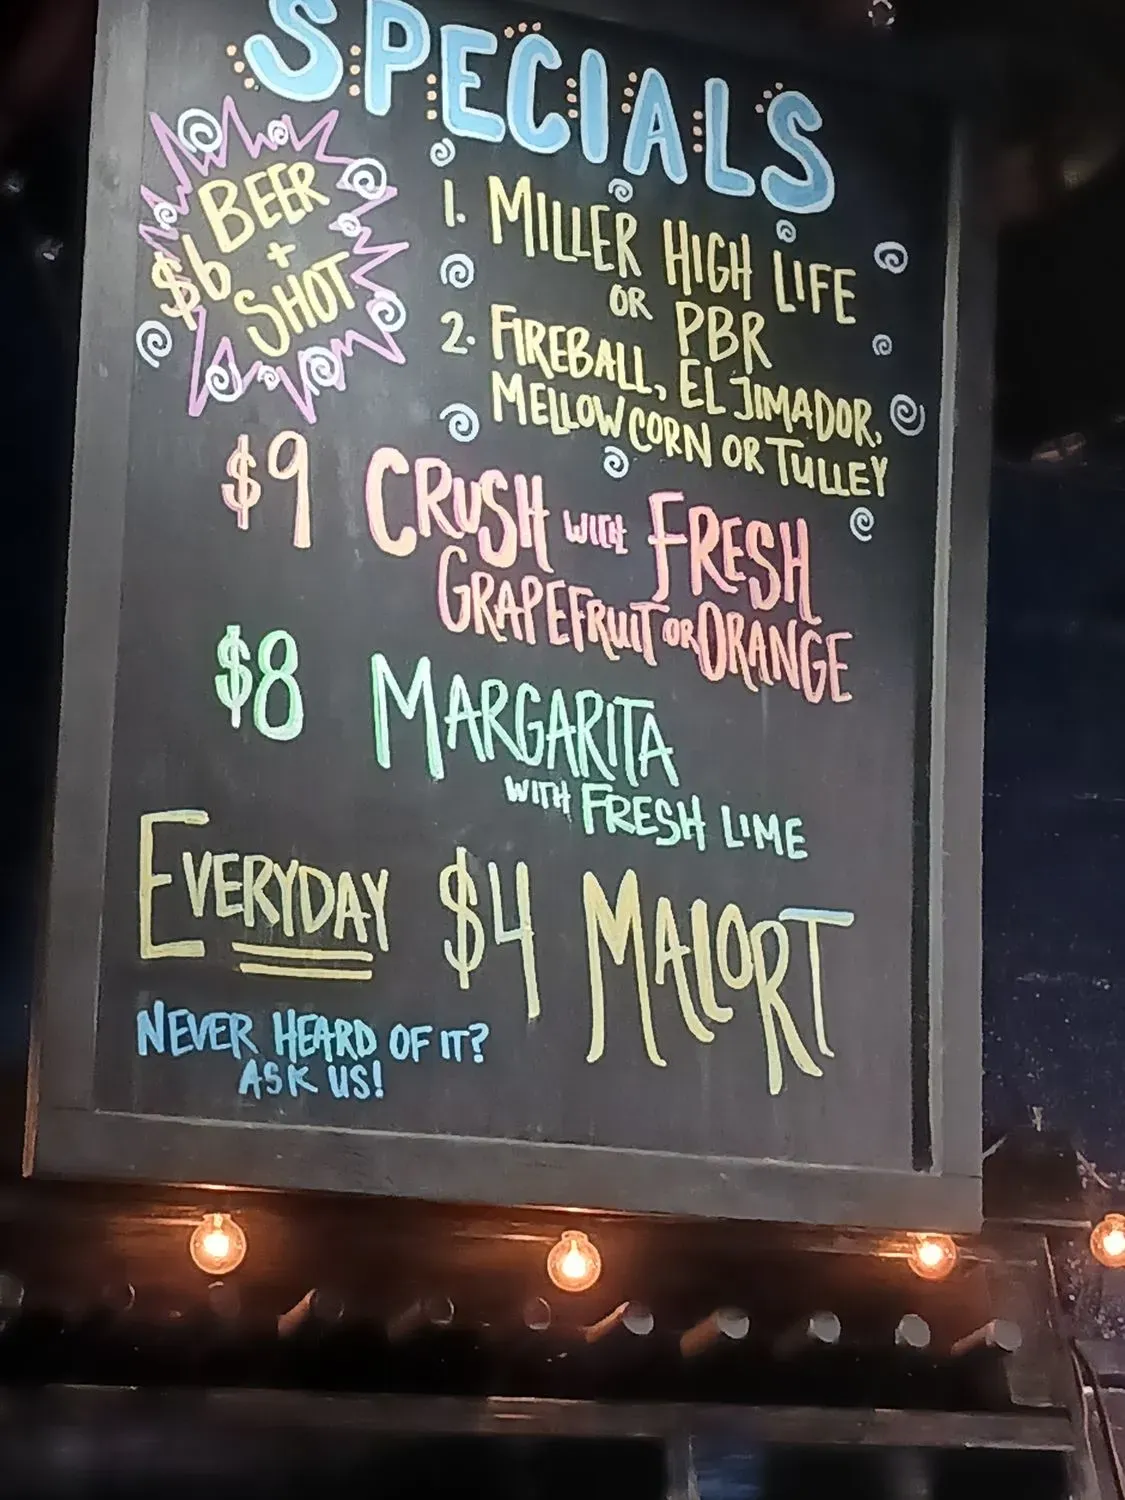 SPECIALS
BEER
+
$6 SHOT
1. MILLER HIGH LIFE
OR PBR
2. FIREBALL, EL JIMADOR,
MELLOW CORN OR TULLEY
$9 CRUSH WITH FRESH
GRAPEFRUIT OR ORANGE
$8 MARGARITA
WITH FRESH LIME
EVERYDAY $4 MALORT
NEVER HEARD OF IT?
ASK US!